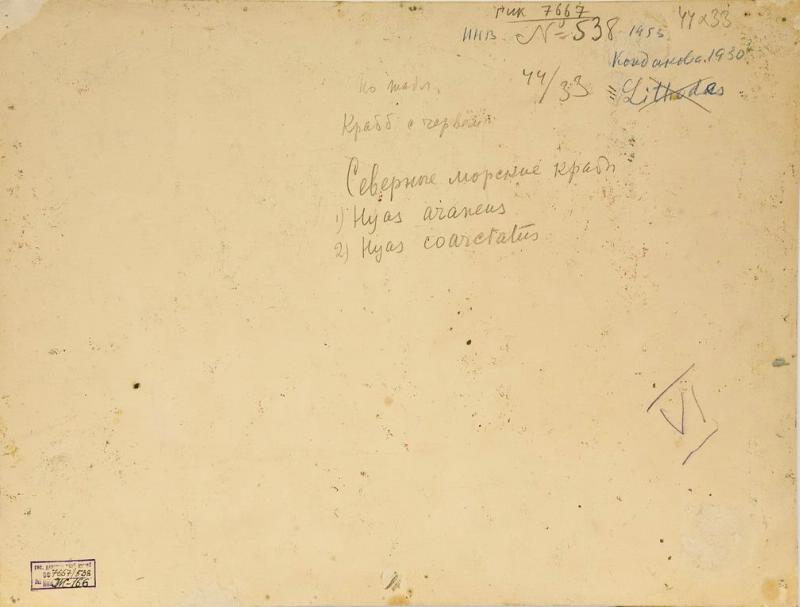 ГИК 7667
ИНВ. № 538 1953 44x33
Конданова. 1930
44/33 Lithodes
Крабб с червём
Северные морские крабы
1) Hyas araneus
2) Hyas coarctatus
VI
7667/538